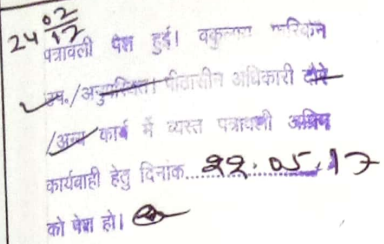 24 02/17
पत्रावली पेश हुई। वकुलाय फरिकेन
उप./अनुपस्थित। पीठासीन अधिकारी दौरे
/अन्य कार्य में व्यस्त पत्रावली अग्रिम
कार्यवाही हेतु दिनांक....22.05.17
को पेश हो।